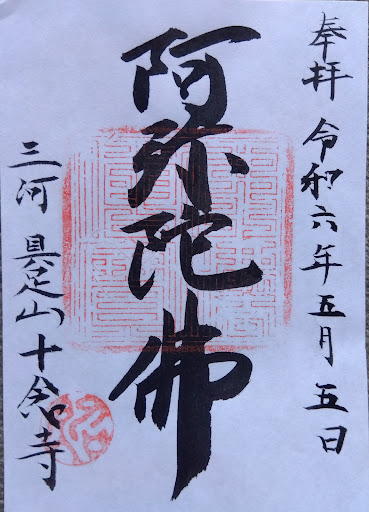 奉拝 令和六年五月五日
阿弥陀佛
三河 具足山十念寺